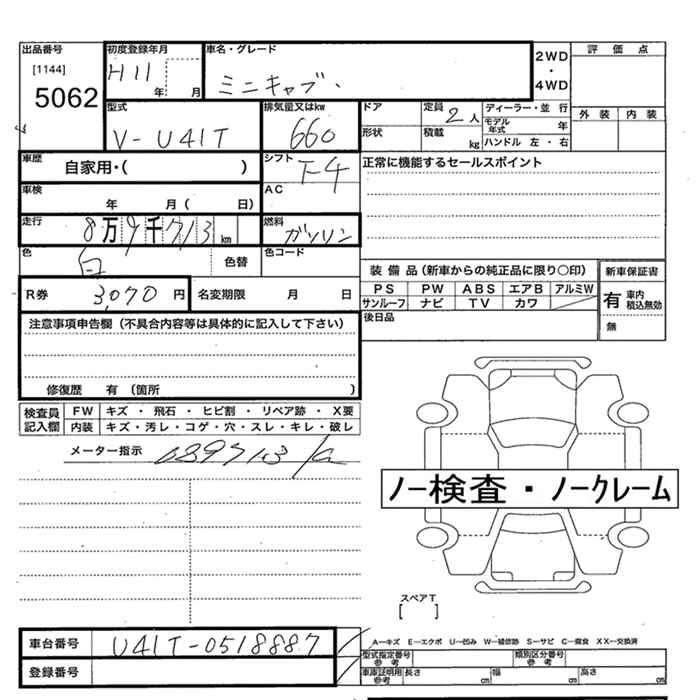 出品番号
[1144]
5062
初度登録年月
H11 年 月
車名・グレード
ミニキャブ
2WD
・
4WD
評価点
外装 内装
型式
V-U41T
排気量又はkw
660
ドア
形状
定員 2人
積載 kg
ディーラー・並行
モデル年式 年
ハンドル 左・右
車歴 自家用・( )
シフト F4
AC
正常に機能するセールスポイント
車検 年 月( 日)
走行 8万9千713km
燃料 ガソリン
色 白 色替
色コード
装備品(新車からの純正品に限り○印)
新車保証書
PS PW ABS エアB アルミW
サンルーフ ナビ TV カワ
有 車内積込無効
無
R券 3,070円
名変期限 月 日
後日品
注意事項申告欄(不具合内容等は具体的に記入して下さい)
修復歴 有 (箇所 )
検査員記入欄
FW キズ・飛石・ヒビ割・リペア跡・X要
内装 キズ・汚レ・コゲ・穴・スレ・キレ・破レ
メーター指示 089713
ノー検査・ノークレーム
スペアT
[ ]
車台番号 U41T-0518887
登録番号
A―キズ E―エクボ U―凹み W―補修跡 S―サビ C―腐食 XX―交換済
型式指定番号 参考
類別区分番号 参考
車庫証明用 参考 長さ cm 幅 cm 高さ cm